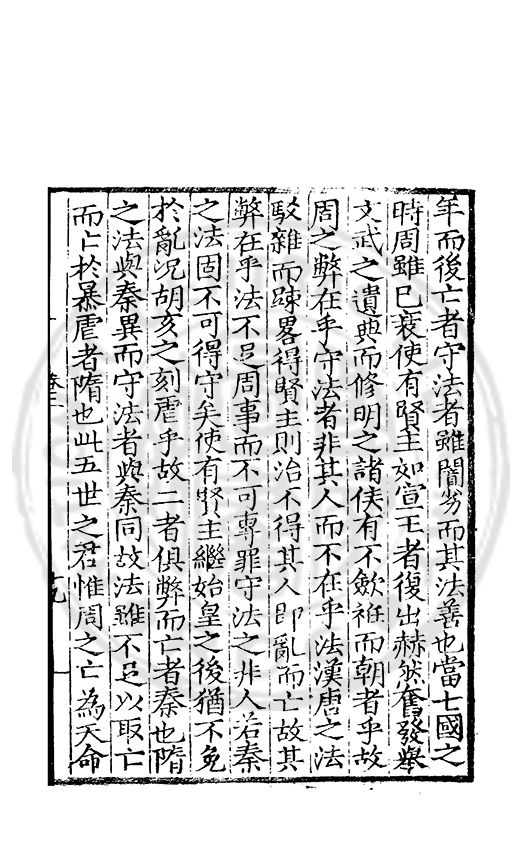 年而後亡者守法者雖闇劣而其法善也當七國之
時周雖已衰使有賢主如宣王者復出赫然奮發舉
文武之遺典而修明之諸侯有不歛袵而朝者乎故
周之弊在乎守法者非其人而不在乎法漢唐之法
駁雜而踈畧得賢主則治不得其人即亂而亡故其
弊在乎法不足周事而不可專罪守法之非人若秦
之法固不可得守矣使有賢主繼始皇之後猶不免
於亂况胡亥之刻虐乎故二者俱弊而亡者秦也隋
之法與秦異而守法者與秦同故法雖不足以取亡
而亡於暴虐者隋也此五世之君惟周之亡為天命